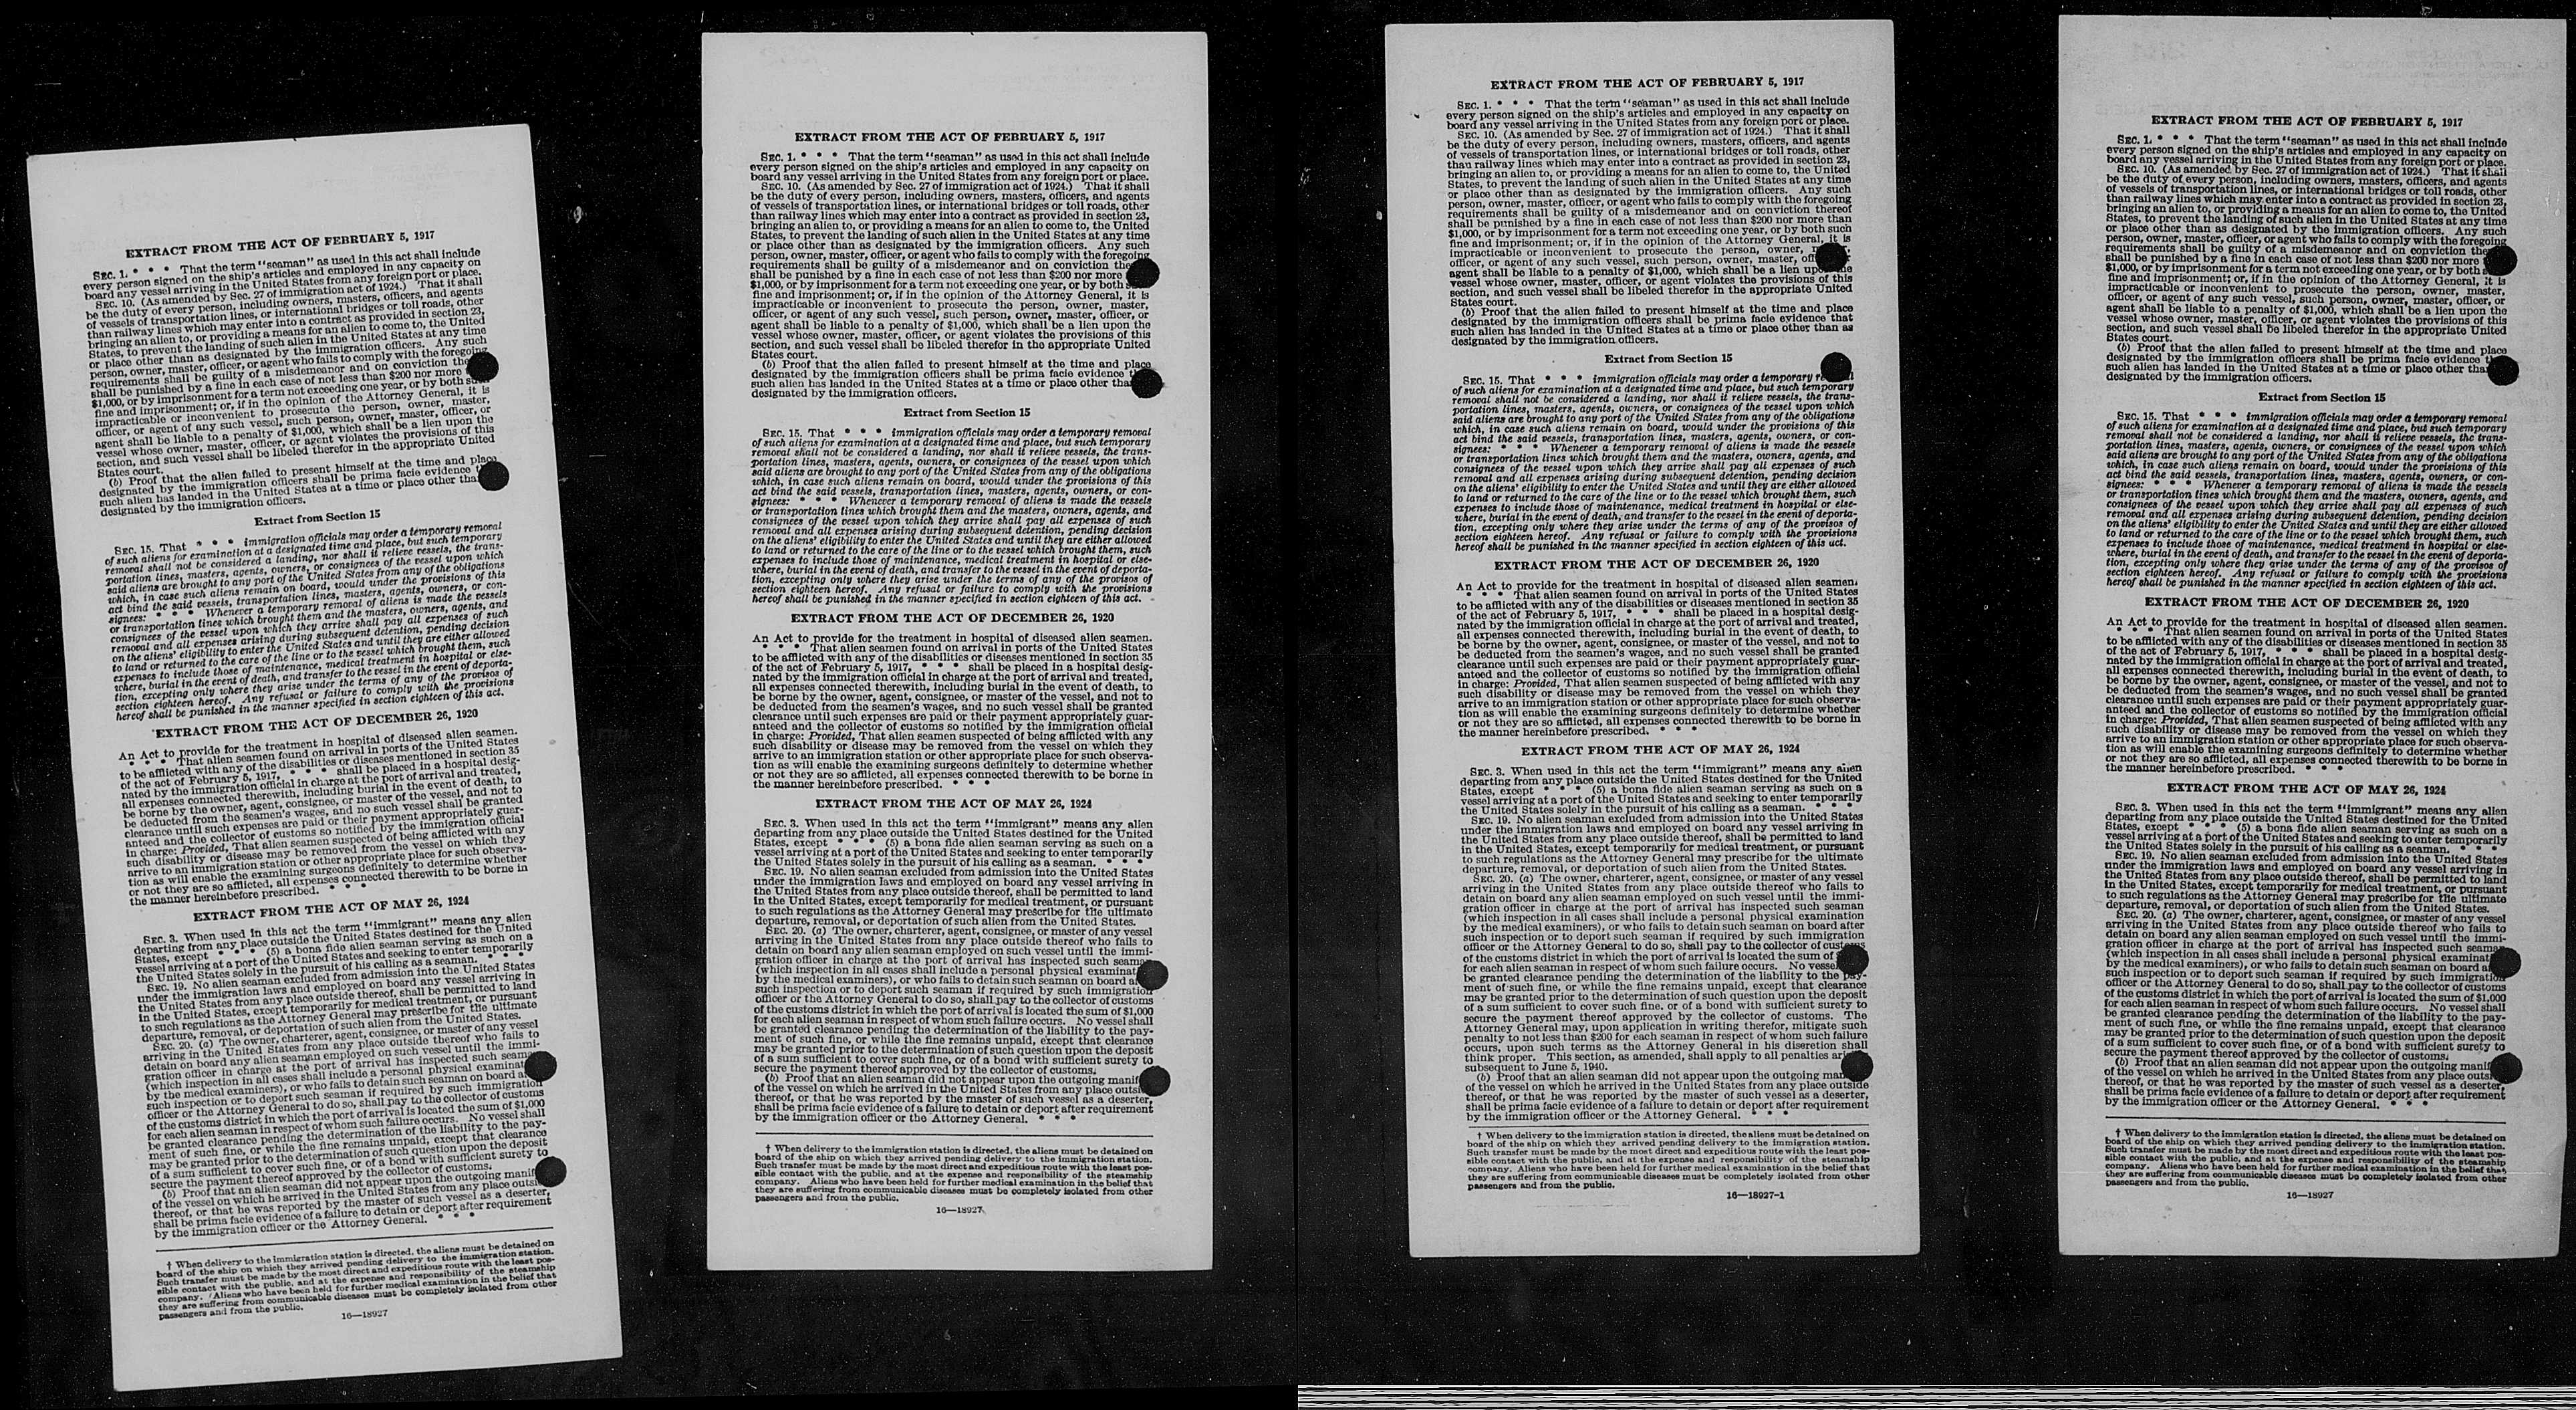 EXTRACT FROM THE ACT OF FEBRUARY 5, 1917
SEC. 1. * * * That the term "seaman" as used in this act shall include
every person signed on the ship's articles and employed in any capacity on
board any vessel arriving in the United States from any foreign port or place.
SEC. 10. (As amended by Sec. 27 of immigration act of 1924.) That it shall
be the duty of every person, including owners, masters, officers, and agents
of vessels of transportation lines, or international bridges or toll roads, other
than railway lines which may enter into a contract as provided in section 23,
bringing an alien to, or providing a means for an alien to come to, the United
States, to prevent the landing of such alien in the United States at any time
or place other than as designated by the immigration officers. Any such
person, owner, master, officer, or agent who fails to comply with the foregoing
requirements shall be guilty of a misdemeanor and on conviction
shall be punished by a fine in each case of not less than $200 nor more
$1,000, or by imprisonment for a term not exceeding one year, or by both
fine and imprisonment; or, if in the opinion of the Attorney General, it is
impracticable or inconvenient to prosecute the person, owner, master,
officer, or agent of any such vessel, such person, owner, master, officer, or
agent shall be liable to a penalty of $1,000, which shall be a lien upon the
vessel whose owner, master, officer, or agent violates the provisions of this
section, and such vessel shall be libeled therefor in the appropriate United
States court.
(b) Proof that the alien failed to present himself at the time and place
designated by the immigration officers shall be prima facie evidence
such alien has landed in the United States at a time or place other
designated by the immigration officers.
Extract from Section 15
SEC. 15. That * * * immigration officials may order a temporary removal
of such aliens for examination at a designated time and place, but such temporary
removal shall not be considered a landing, nor shall it relieve vessels, the trans-
portation lines, masters, agents, owners, or consignees of the vessel upon which
said aliens are brought to any port of the United States from any of the obligations
which, in case such aliens remain on board, would under the provisions of this
act bind the said vessels, transportation lines, masters, agents, owners, or con-
signees: * * * Whenever a temporary removal of aliens is made the vessels
or transportation lines which brought them and the masters, owners, agents, and
consignees of the vessel upon which they arrive shall pay all expenses of such
removal and all expenses arising during subsequent detention, pending decision
on the aliens' eligibility to enter the United States and until they are either allowed
to land or returned to the care of the line or to the vessel which brought them, such
expenses to include those of maintenance, medical treatment in hospital or else-
where, burial in the event of death, and transfer to the vessel in the event of deporta-
tion, excepting only where they arise under the terms of any of the provisos of
section eighteen hereof. Any refusal or failure to comply with the provisions
hereof shall be punished in the manner specified in section eighteen of this act.
EXTRACT FROM THE ACT OF DECEMBER 26, 1920
An Act to provide for the treatment in hospital of diseased alien seamen.
* * * That alien seamen found on arrival in ports of the United States
to be afflicted with any of the disabilities or diseases mentioned in section 35
of the act of February 5, 1917, * * * shall be placed in a hospital desig-
nated by the immigration official in charge at the port of arrival and treated,
all expenses connected therewith, including burial in the event of death, to
be borne by the owner, agent, consignee, or master of the vessel, and not to
be deducted from the seamen's wages, and no such vessel shall be granted
clearance until such expenses are paid or their payment appropriately guar-
anteed and the collector of customs so notified by the immigration official
in charge: Provided, That alien seamen suspected of being afflicted with any
such disability or disease may be removed from the vessel on which they
arrive to an immigration station or other appropriate place for such observa-
tion as will enable the examining surgeons definitely to determine whether
or not they are so afflicted, all expenses connected therewith to be borne in
the manner hereinbefore prescribed. * * *
EXTRACT FROM THE ACT OF MAY 26, 1924
SEC. 3. When used in this act the term "immigrant" means any alien
departing from any place outside the United States destined for the United
States, except * * * (5) a bona fide alien seaman serving as such on a
vessel arriving at a port of the United States and seeking to enter temporarily
the United States solely in the pursuit of his calling as a seaman. * * *
SEC. 19. No alien seaman excluded from admission into the United States
under the immigration laws and employed on board any vessel arriving in
the United States from any place outside thereof, shall be permitted to land
in the United States, except temporarily for medical treatment, or pursuant
to such regulations as the Attorney General may prescribe for the ultimate
departure, removal, or deportation of such alien from the United States.
SEC. 20. (a) The owner, charterer, agent, consignee, or master of any vessel
arriving in the United States from any place outside thereof who fails to
detain on board any alien seaman employed on such vessel until the immi-
gration officer in charge at the port of arrival has inspected such seaman
(which inspection in all cases shall include a personal physical
by the medical examiners), or who fails to detain such seaman on board
such inspection or to deport such seaman if required by such immigration
officer or the Attorney General to do so, shall pay to the collector of customs
of the customs district in which the port of arrival is located the sum of $1,000
for each alien seaman in respect of whom such failure occurs. No vessel shall
be granted clearance pending the determination of the liability to the pay-
ment of such fine, or while the fine remains unpaid, except that clearance
may be granted prior to the determination of such question upon the deposit
of a sum sufficient to cover such fine, or of a bond with sufficient surety to
secure the payment thereof approved by the collector of customs.
(b) Proof that an alien seaman did not appear upon the outgoing
of the vessel on which he arrived in the United States from any place
thereof, or that he was reported by the master of such vessel as a deserter,
shall be prima facie evidence of a failure to detain or deport after requirement
by the immigration officer or the Attorney General. * * *
† When delivery to the immigration station is directed, the aliens must be detained on
board of the ship on which they arrived pending delivery to the immigration station.
Such transfer must be made by the most direct and expeditious route with the least pos-
sible contact with the public, and at the expense and responsibility of the steamship
company. Aliens who have been held for further medical examination in the belief that
they are suffering from communicable diseases must be completely isolated from other
passengers and from the public.
16—18927
EXTRACT FROM THE ACT OF FEBRUARY 5, 1917
SEC. 1. * * * That the term "seaman" as used in this act shall include
every person signed on the ship's articles and employed in any capacity on
board any vessel arriving in the United States from any foreign port or place.
SEC. 10. (As amended by Sec. 27 of immigration act of 1924.) That it shall
be the duty of every person, including owners, masters, officers, and agents
of vessels of transportation lines, or international bridges or toll roads, other
than railway lines which may enter into a contract as provided in section 23,
bringing an alien to, or providing a means for an alien to come to, the United
States, to prevent the landing of such alien in the United States at any time
or place other than as designated by the immigration officers. Any such
person, owner, master, officer, or agent who fails to comply with the foregoing
requirements shall be guilty of a misdemeanor and on conviction
shall be punished by a fine in each case of not less than $200 nor more
$1,000, or by imprisonment for a term not exceeding one year, or by both
fine and imprisonment; or, if in the opinion of the Attorney General, it is
impracticable or inconvenient to prosecute the person, owner, master,
officer, or agent of any such vessel, such person, owner, master, officer, or
agent shall be liable to a penalty of $1,000, which shall be a lien upon the
vessel whose owner, master, officer, or agent violates the provisions of this
section, and such vessel shall be libeled therefor in the appropriate United
States court.
(b) Proof that the alien failed to present himself at the time and place
designated by the immigration officers shall be prima facie evidence
such alien has landed in the United States at a time or place other
designated by the immigration officers.
Extract from Section 15
SEC. 15. That * * * immigration officials may order a temporary removal
of such aliens for examination at a designated time and place, but such temporary
removal shall not be considered a landing, nor shall it relieve vessels, the trans-
portation lines, masters, agents, owners, or consignees of the vessel upon which
said aliens are brought to any port of the United States from any of the obligations
which, in case such aliens remain on board, would under the provisions of this
act bind the said vessels, transportation lines, masters, agents, owners, or con-
signees: * * * Whenever a temporary removal of aliens is made the vessels
or transportation lines which brought them and the masters, owners, agents, and
consignees of the vessel upon which they arrive shall pay all expenses of such
removal and all expenses arising during subsequent detention, pending decision
on the aliens' eligibility to enter the United States and until they are either allowed
to land or returned to the care of the line or to the vessel which brought them, such
expenses to include those of maintenance, medical treatment in hospital or else-
where, burial in the event of death, and transfer to the vessel in the event of deporta-
tion, excepting only where they arise under the terms of any of the provisos of
section eighteen hereof. Any refusal or failure to comply with the provisions
hereof shall be punished in the manner specified in section eighteen of this act.
EXTRACT FROM THE ACT OF DECEMBER 26, 1920
An Act to provide for the treatment in hospital of diseased alien seamen.
* * * That alien seamen found on arrival in ports of the United States
to be afflicted with any of the disabilities or diseases mentioned in section 35
of the act of February 5, 1917, * * * shall be placed in a hospital desig-
nated by the immigration official in charge at the port of arrival and treated,
all expenses connected therewith, including burial in the event of death, to
be borne by the owner, agent, consignee, or master of the vessel, and not to
be deducted from the seamen's wages, and no such vessel shall be granted
clearance until such expenses are paid or their payment appropriately guar-
anteed and the collector of customs so notified by the immigration official
in charge: Provided, That alien seamen suspected of being afflicted with any
such disability or disease may be removed from the vessel on which they
arrive to an immigration station or other appropriate place for such observa-
tion as will enable the examining surgeons definitely to determine whether
or not they are so afflicted, all expenses connected therewith to be borne in
the manner hereinbefore prescribed. * * *
EXTRACT FROM THE ACT OF MAY 26, 1924
SEC. 3. When used in this act the term "immigrant" means any alien
departing from any place outside the United States destined for the United
States, except * * * (5) a bona fide alien seaman serving as such on a
vessel arriving at a port of the United States and seeking to enter temporarily
the United States solely in the pursuit of his calling as a seaman. * * *
SEC. 19. No alien seaman excluded from admission into the United States
under the immigration laws and employed on board any vessel arriving in
the United States from any place outside thereof, shall be permitted to land
in the United States, except temporarily for medical treatment, or pursuant
to such regulations as the Attorney General may prescribe for the ultimate
departure, removal, or deportation of such alien from the United States.
SEC. 20. (a) The owner, charterer, agent, consignee, or master of any vessel
arriving in the United States from any place outside thereof who fails to
detain on board any alien seaman employed on such vessel until the immi-
gration officer in charge at the port of arrival has inspected such seaman
(which inspection in all cases shall include a personal physical
by the medical examiners), or who fails to detain such seaman on board
such inspection or to deport such seaman if required by such immigration
officer or the Attorney General to do so, shall pay to the collector of customs
of the customs district in which the port of arrival is located the sum of $1,000
for each alien seaman in respect of whom such failure occurs. No vessel shall
be granted clearance pending the determination of the liability to the pay-
ment of such fine, or while the fine remains unpaid, except that clearance
may be granted prior to the determination of such question upon the deposit
of a sum sufficient to cover such fine, or of a bond with sufficient surety to
secure the payment thereof approved by the collector of customs.
(b) Proof that an alien seaman did not appear upon the outgoing
of the vessel on which he arrived in the United States from any place
thereof, or that he was reported by the master of such vessel as a deserter,
shall be prima facie evidence of a failure to detain or deport after requirement
by the immigration officer or the Attorney General. * * *
† When delivery to the immigration station is directed, the aliens must be detained on
board of the ship on which they arrived pending delivery to the immigration station.
Such transfer must be made by the most direct and expeditious route with the least pos-
sible contact with the public, and at the expense and responsibility of the steamship
company. Aliens who have been held for further medical examination in the belief that
they are suffering from communicable diseases must be completely isolated from other
passengers and from the public.
16—18927
EXTRACT FROM THE ACT OF FEBRUARY 5, 1917
SEC. 1. * * * That the term "seaman" as used in this act shall include
every person signed on the ship's articles and employed in any capacity on
board any vessel arriving in the United States from any foreign port or place.
SEC. 10. (As amended by Sec. 27 of immigration act of 1924.) That it shall
be the duty of every person, including owners, masters, officers, and agents
of vessels of transportation lines, or international bridges or toll roads, other
than railway lines which may enter into a contract as provided in section 23,
bringing an alien to, or providing a means for an alien to come to, the United
States, to prevent the landing of such alien in the United States at any time
or place other than as designated by the immigration officers. Any such
person, owner, master, officer, or agent who fails to comply with the foregoing
requirements shall be guilty of a misdemeanor and on conviction thereof
shall be punished by a fine in each case of not less than $200 nor more than
$1,000, or by imprisonment for a term not exceeding one year, or by both such
fine and imprisonment; or, if in the opinion of the Attorney General, it is
impracticable or inconvenient to prosecute the person, owner,
officer, or agent of any such vessel, such person, owner, master,
agent shall be liable to a penalty of $1,000, which shall be a lien upon the
vessel whose owner, master, officer, or agent violates the provisions of this
section, and such vessel shall be libeled therefor in the appropriate United
States court.
(b) Proof that the alien failed to present himself at the time and place
designated by the immigration officers shall be prima facie evidence that
such alien has landed in the United States at a time or place other than as
designated by the immigration officers.
Extract from Section 15
SEC. 15. That * * * immigration officials may order a temporary
of such aliens for examination at a designated time and place, but such temporary
removal shall not be considered a landing, nor shall it relieve vessels, the trans-
portation lines, masters, agents, owners, or consignees of the vessel upon which
said aliens are brought to any port of the United States from any of the obligations
which, in case such aliens remain on board, would under the provisions of this
act bind the said vessels, transportation lines, masters, agents, owners, or con-
signees: * * * Whenever a temporary removal of aliens is made the vessels
or transportation lines which brought them and the masters, owners, agents, and
consignees of the vessel upon which they arrive shall pay all expenses of such
removal and all expenses arising during subsequent detention, pending decision
on the aliens' eligibility to enter the United States and until they are either allowed
to land or returned to the care of the line or to the vessel which brought them, such
expenses to include those of maintenance, medical treatment in hospital or else-
where, burial in the event of death, and transfer to the vessel in the event of deporta-
tion, excepting only where they arise under the terms of any of the provisos of
section eighteen hereof. Any refusal or failure to comply with the provisions
hereof shall be punished in the manner specified in section eighteen of this act.
EXTRACT FROM THE ACT OF DECEMBER 26, 1920
An Act to provide for the treatment in hospital of diseased alien seamen.
* * * That alien seamen found on arrival in ports of the United States
to be afflicted with any of the disabilities or diseases mentioned in section 35
of the act of February 5, 1917, * * * shall be placed in a hospital desig-
nated by the immigration official in charge at the port of arrival and treated,
all expenses connected therewith, including burial in the event of death, to
be borne by the owner, agent, consignee, or master of the vessel, and not to
be deducted from the seamen's wages, and no such vessel shall be granted
clearance until such expenses are paid or their payment appropriately guar-
anteed and the collector of customs so notified by the immigration official
in charge: Provided, That alien seamen suspected of being afflicted with any
such disability or disease may be removed from the vessel on which they
arrive to an immigration station or other appropriate place for such observa-
tion as will enable the examining surgeons definitely to determine whether
or not they are so afflicted, all expenses connected therewith to be borne in
the manner hereinbefore prescribed. * * *
EXTRACT FROM THE ACT OF MAY 26, 1924
SEC. 3. When used in this act the term "immigrant" means any alien
departing from any place outside the United States destined for the United
States, except * * * (5) a bona fide alien seaman serving as such on a
vessel arriving at a port of the United States and seeking to enter temporarily
the United States solely in the pursuit of his calling as a seaman. * * *
SEC. 19. No alien seaman excluded from admission into the United States
under the immigration laws and employed on board any vessel arriving in
the United States from any place outside thereof, shall be permitted to land
in the United States, except temporarily for medical treatment, or pursuant
to such regulations as the Attorney General may prescribe for the ultimate
departure, removal, or deportation of such alien from the United States.
SEC. 20. (a) The owner, charterer, agent, consignee, or master of any vessel
arriving in the United States from any place outside thereof who fails to
detain on board any alien seaman employed on such vessel until the immi-
gration officer in charge at the port of arrival has inspected such seaman
(which inspection in all cases shall include a personal physical examination
by the medical examiners), or who fails to detain such seaman on board after
such inspection or to deport such seaman if required by such immigration
officer or the Attorney General to do so, shall pay to the collector of customs
of the customs district in which the port of arrival is located the sum of
for each alien seaman in respect of whom such failure occurs. No
be granted clearance pending the determination of the liability to the pay-
ment of such fine, or while the fine remains unpaid, except that clearance
may be granted prior to the determination of such question upon the deposit
of a sum sufficient to cover such fine, or of a bond with sufficient surety to
secure the payment thereof approved by the collector of customs. The
Attorney General may, upon application in writing therefor, mitigate such
penalty to not less than $200 for each seaman in respect of whom such failure
occurs, upon such terms as the Attorney General in his discretion shall
think proper. This section, as amended, shall apply to all penalties
subsequent to June 5, 1940.
(b) Proof that an alien seaman did not appear upon the outgoing
of the vessel on which he arrived in the United States from any place outside
thereof, or that he was reported by the master of such vessel as a deserter,
shall be prima facie evidence of a failure to detain or deport after requirement
by the immigration officer or the Attorney General. * * *
† When delivery to the immigration station is directed, the aliens must be detained on
board of the ship on which they arrived pending delivery to the immigration station.
Such transfer must be made by the most direct and expeditious route with the least pos-
sible contact with the public, and at the expense and responsibility of the steamship
company. Aliens who have been held for further medical examination in the belief that
they are suffering from communicable diseases must be completely isolated from other
passengers and from the public.
16—18927-1
EXTRACT FROM THE ACT OF FEBRUARY 5, 1917
SEC. 1. * * * That the term "seaman" as used in this act shall include
every person signed on the ship's articles and employed in any capacity on
board any vessel arriving in the United States from any foreign port or place.
SEC. 10. (As amended by Sec. 27 of immigration act of 1924.) That it shall
be the duty of every person, including owners, masters, officers, and agents
of vessels of transportation lines, or international bridges or toll roads, other
than railway lines which may enter into a contract as provided in section 23,
bringing an alien to, or providing a means for an alien to come to, the United
States, to prevent the landing of such alien in the United States at any time
or place other than as designated by the immigration officers. Any such
person, owner, master, officer, or agent who fails to comply with the foregoing
requirements shall be guilty of a misdemeanor and on conviction
shall be punished by a fine in each case of not less than $200 nor more
$1,000, or by imprisonment for a term not exceeding one year, or by both
fine and imprisonment; or, if in the opinion of the Attorney General, it is
impracticable or inconvenient to prosecute the person, owner, master,
officer, or agent of any such vessel, such person, owner, master, officer, or
agent shall be liable to a penalty of $1,000, which shall be a lien upon the
vessel whose owner, master, officer, or agent violates the provisions of this
section, and such vessel shall be libeled therefor in the appropriate United
States court.
(b) Proof that the alien failed to present himself at the time and place
designated by the immigration officers shall be prima facie evidence
such alien has landed in the United States at a time or place other
designated by the immigration officers.
Extract from Section 15
SEC. 15. That * * * immigration officials may order a temporary removal
of such aliens for examination at a designated time and place, but such temporary
removal shall not be considered a landing, nor shall it relieve vessels, the trans-
portation lines, masters, agents, owners, or consignees of the vessel upon which
said aliens are brought to any port of the United States from any of the obligations
which, in case such aliens remain on board, would under the provisions of this
act bind the said vessels, transportation lines, masters, agents, owners, or con-
signees: * * * Whenever a temporary removal of aliens is made the vessels
or transportation lines which brought them and the masters, owners, agents, and
consignees of the vessel upon which they arrive shall pay all expenses of such
removal and all expenses arising during subsequent detention, pending decision
on the aliens' eligibility to enter the United States and until they are either allowed
to land or returned to the care of the line or to the vessel which brought them, such
expenses to include those of maintenance, medical treatment in hospital or else-
where, burial in the event of death, and transfer to the vessel in the event of deporta-
tion, excepting only where they arise under the terms of any of the provisos of
section eighteen hereof. Any refusal or failure to comply with the provisions
hereof shall be punished in the manner specified in section eighteen of this act.
EXTRACT FROM THE ACT OF DECEMBER 26, 1920
An Act to provide for the treatment in hospital of diseased alien seamen.
* * * That alien seamen found on arrival in ports of the United States
to be afflicted with any of the disabilities or diseases mentioned in section 35
of the act of February 5, 1917, * * * shall be placed in a hospital desig-
nated by the immigration official in charge at the port of arrival and treated,
all expenses connected therewith, including burial in the event of death, to
be borne by the owner, agent, consignee, or master of the vessel, and not to
be deducted from the seamen's wages, and no such vessel shall be granted
clearance until such expenses are paid or their payment appropriately guar-
anteed and the collector of customs so notified by the immigration official
in charge: Provided, That alien seamen suspected of being afflicted with any
such disability or disease may be removed from the vessel on which they
arrive to an immigration station or other appropriate place for such observa-
tion as will enable the examining surgeons definitely to determine whether
or not they are so afflicted, all expenses connected therewith to be borne in
the manner hereinbefore prescribed. * * *
EXTRACT FROM THE ACT OF MAY 26, 1924
SEC. 3. When used in this act the term "immigrant" means any alien
departing from any place outside the United States destined for the United
States, except * * * (5) a bona fide alien seaman serving as such on a
vessel arriving at a port of the United States and seeking to enter temporarily
the United States solely in the pursuit of his calling as a seaman. * * *
SEC. 19. No alien seaman excluded from admission into the United States
under the immigration laws and employed on board any vessel arriving in
the United States from any place outside thereof, shall be permitted to land
in the United States, except temporarily for medical treatment, or pursuant
to such regulations as the Attorney General may prescribe for the ultimate
departure, removal, or deportation of such alien from the United States.
SEC. 20. (a) The owner, charterer, agent, consignee, or master of any vessel
arriving in the United States from any place outside thereof who fails to
detain on board any alien seaman employed on such vessel until the immi-
gration officer in charge at the port of arrival has inspected such seaman
(which inspection in all cases shall include a personal physical
by the medical examiners), or who fails to detain such seaman on board
such inspection or to deport such seaman if required by such immigration
officer or the Attorney General to do so, shall pay to the collector of customs
of the customs district in which the port of arrival is located the sum of $1,000
for each alien seaman in respect of whom such failure occurs. No vessel shall
be granted clearance pending the determination of the liability to the pay-
ment of such fine, or while the fine remains unpaid, except that clearance
may be granted prior to the determination of such question upon the deposit
of a sum sufficient to cover such fine, or of a bond with sufficient surety to
secure the payment thereof approved by the collector of customs.
(b) Proof that an alien seaman did not appear upon the outgoing
of the vessel on which he arrived in the United States from any place
thereof, or that he was reported by the master of such vessel as a deserter,
shall be prima facie evidence of a failure to detain or deport after requirement
by the immigration officer or the Attorney General. * * *
† When delivery to the immigration station is directed, the aliens must be detained on
board of the ship on which they arrived pending delivery to the immigration station.
Such transfer must be made by the most direct and expeditious route with the least pos-
sible contact with the public, and at the expense and responsibility of the steamship
company. Aliens who have been held for further medical examination in the belief that
they are suffering from communicable diseases must be completely isolated from other
passengers and from the public.
16—18927